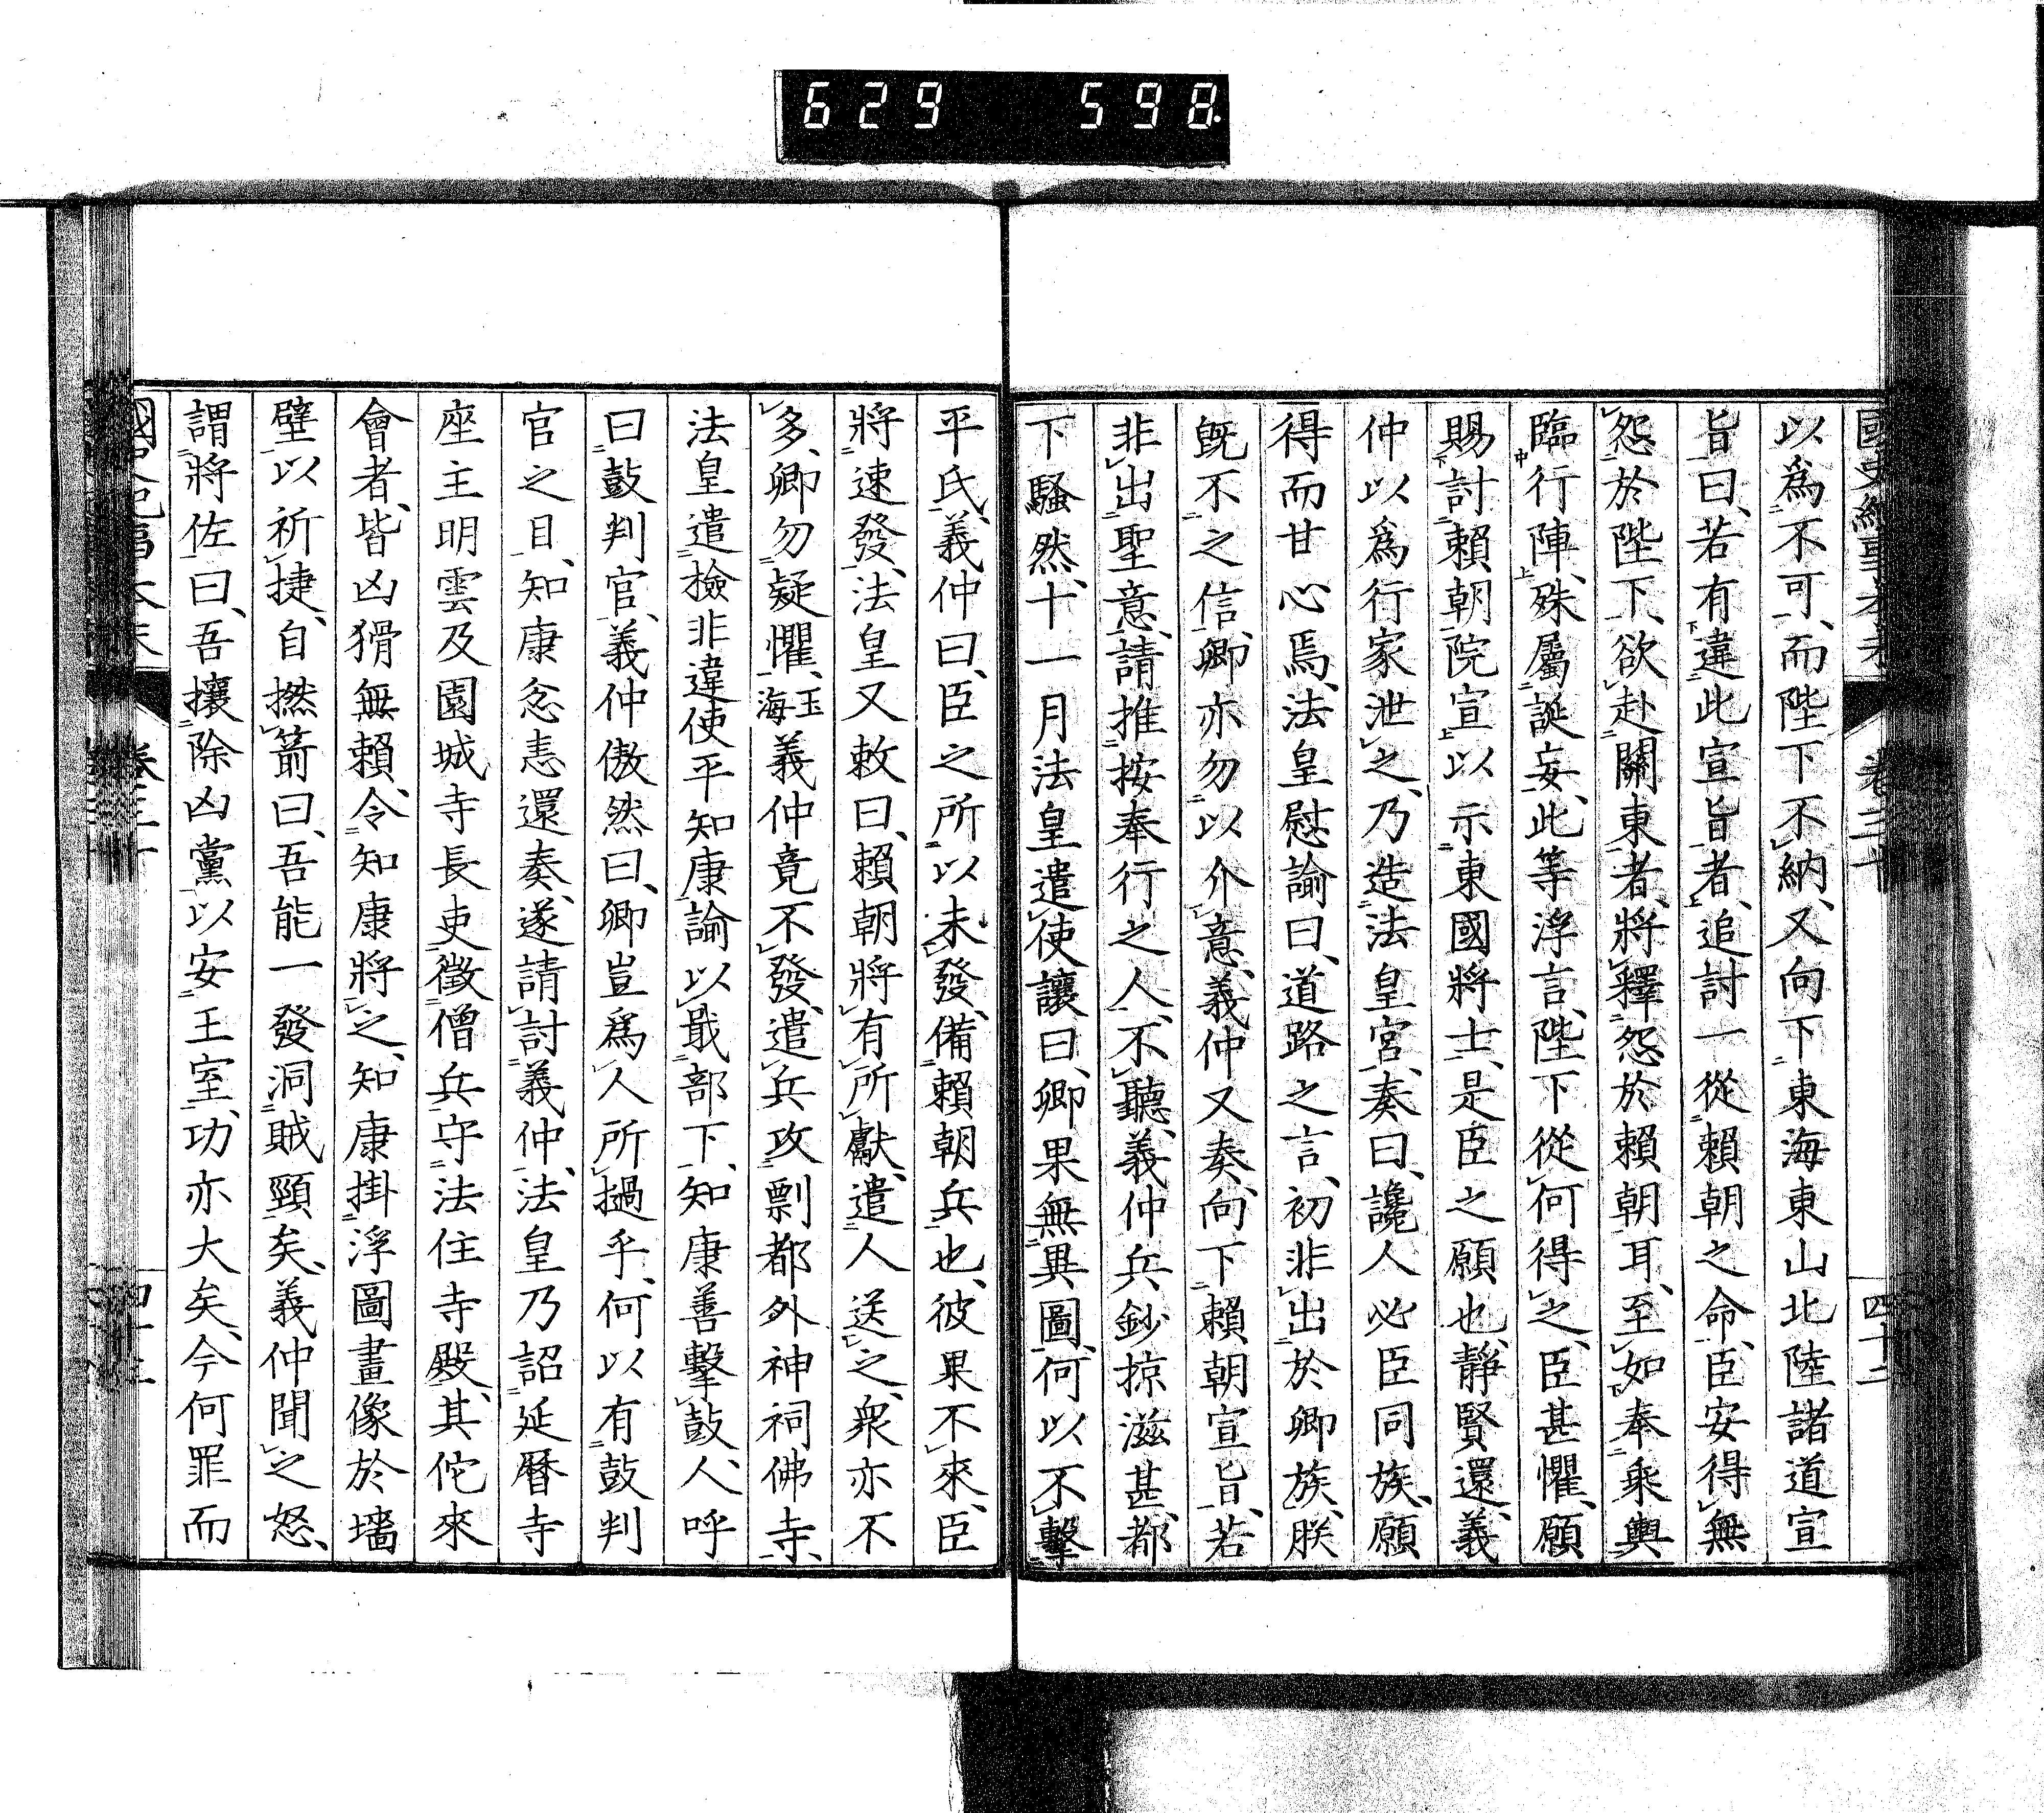 629 598
以爲不可、而陛下不納、又向下東海東山北陸諸道宣
旨曰、若有違此宣旨者、追討一從賴朝之命、臣安得無
怨於陛下、欲赴關東者、將釋怨於賴朝耳、至如奉乘輿
臨行陣、殊屬誕妄、此等浮言、陛下從何得之、臣甚懼、願
賜討賴朝院宣、以示東國將士、是臣之願也、靜賢還、義
仲以爲行家泄之、乃造法皇宮、奏曰、讒人必臣同族、願
得而甘心焉、法皇慰諭曰、道路之言、初非出於卿族、朕
既不之信、卿亦勿以介意、義仲又奏、向下賴朝宣旨、若
非出聖意、請推按奉行之人、不聽、義仲兵鈔掠滋甚、都
下騷然、十一月法皇遣使讓曰、卿果無異圖、何以不擊
平氏、義仲曰、臣之所以未發、備賴朝兵也、彼果不來、臣
將速發、法皇又敕曰、賴朝將有所獻、遣人送之、衆亦不
多、卿勿疑懼、玉海義仲竟不發、遣兵攻剽都外神祠佛寺、
法皇遣檢非違使平知康諭以戢部下、知康善擊鼓、人呼
曰鼓判官、義仲傲然曰、卿豈爲人所撾乎、何以有鼓判
官之目、知康忿恚還奏、遂請討義仲、法皇乃詔延曆寺
座主明雲及園城寺長吏、徵僧兵守法住寺殿、其佗來
會者、皆凶猾無賴、令知康將之、知康掛浮圖畫像於墻
壁以祈捷、自撚箭曰、吾能一發洞賊頸矣、義仲聞之怒、
謂將佐曰、吾攘除凶黨以安王室、功亦大矣、今何罪而